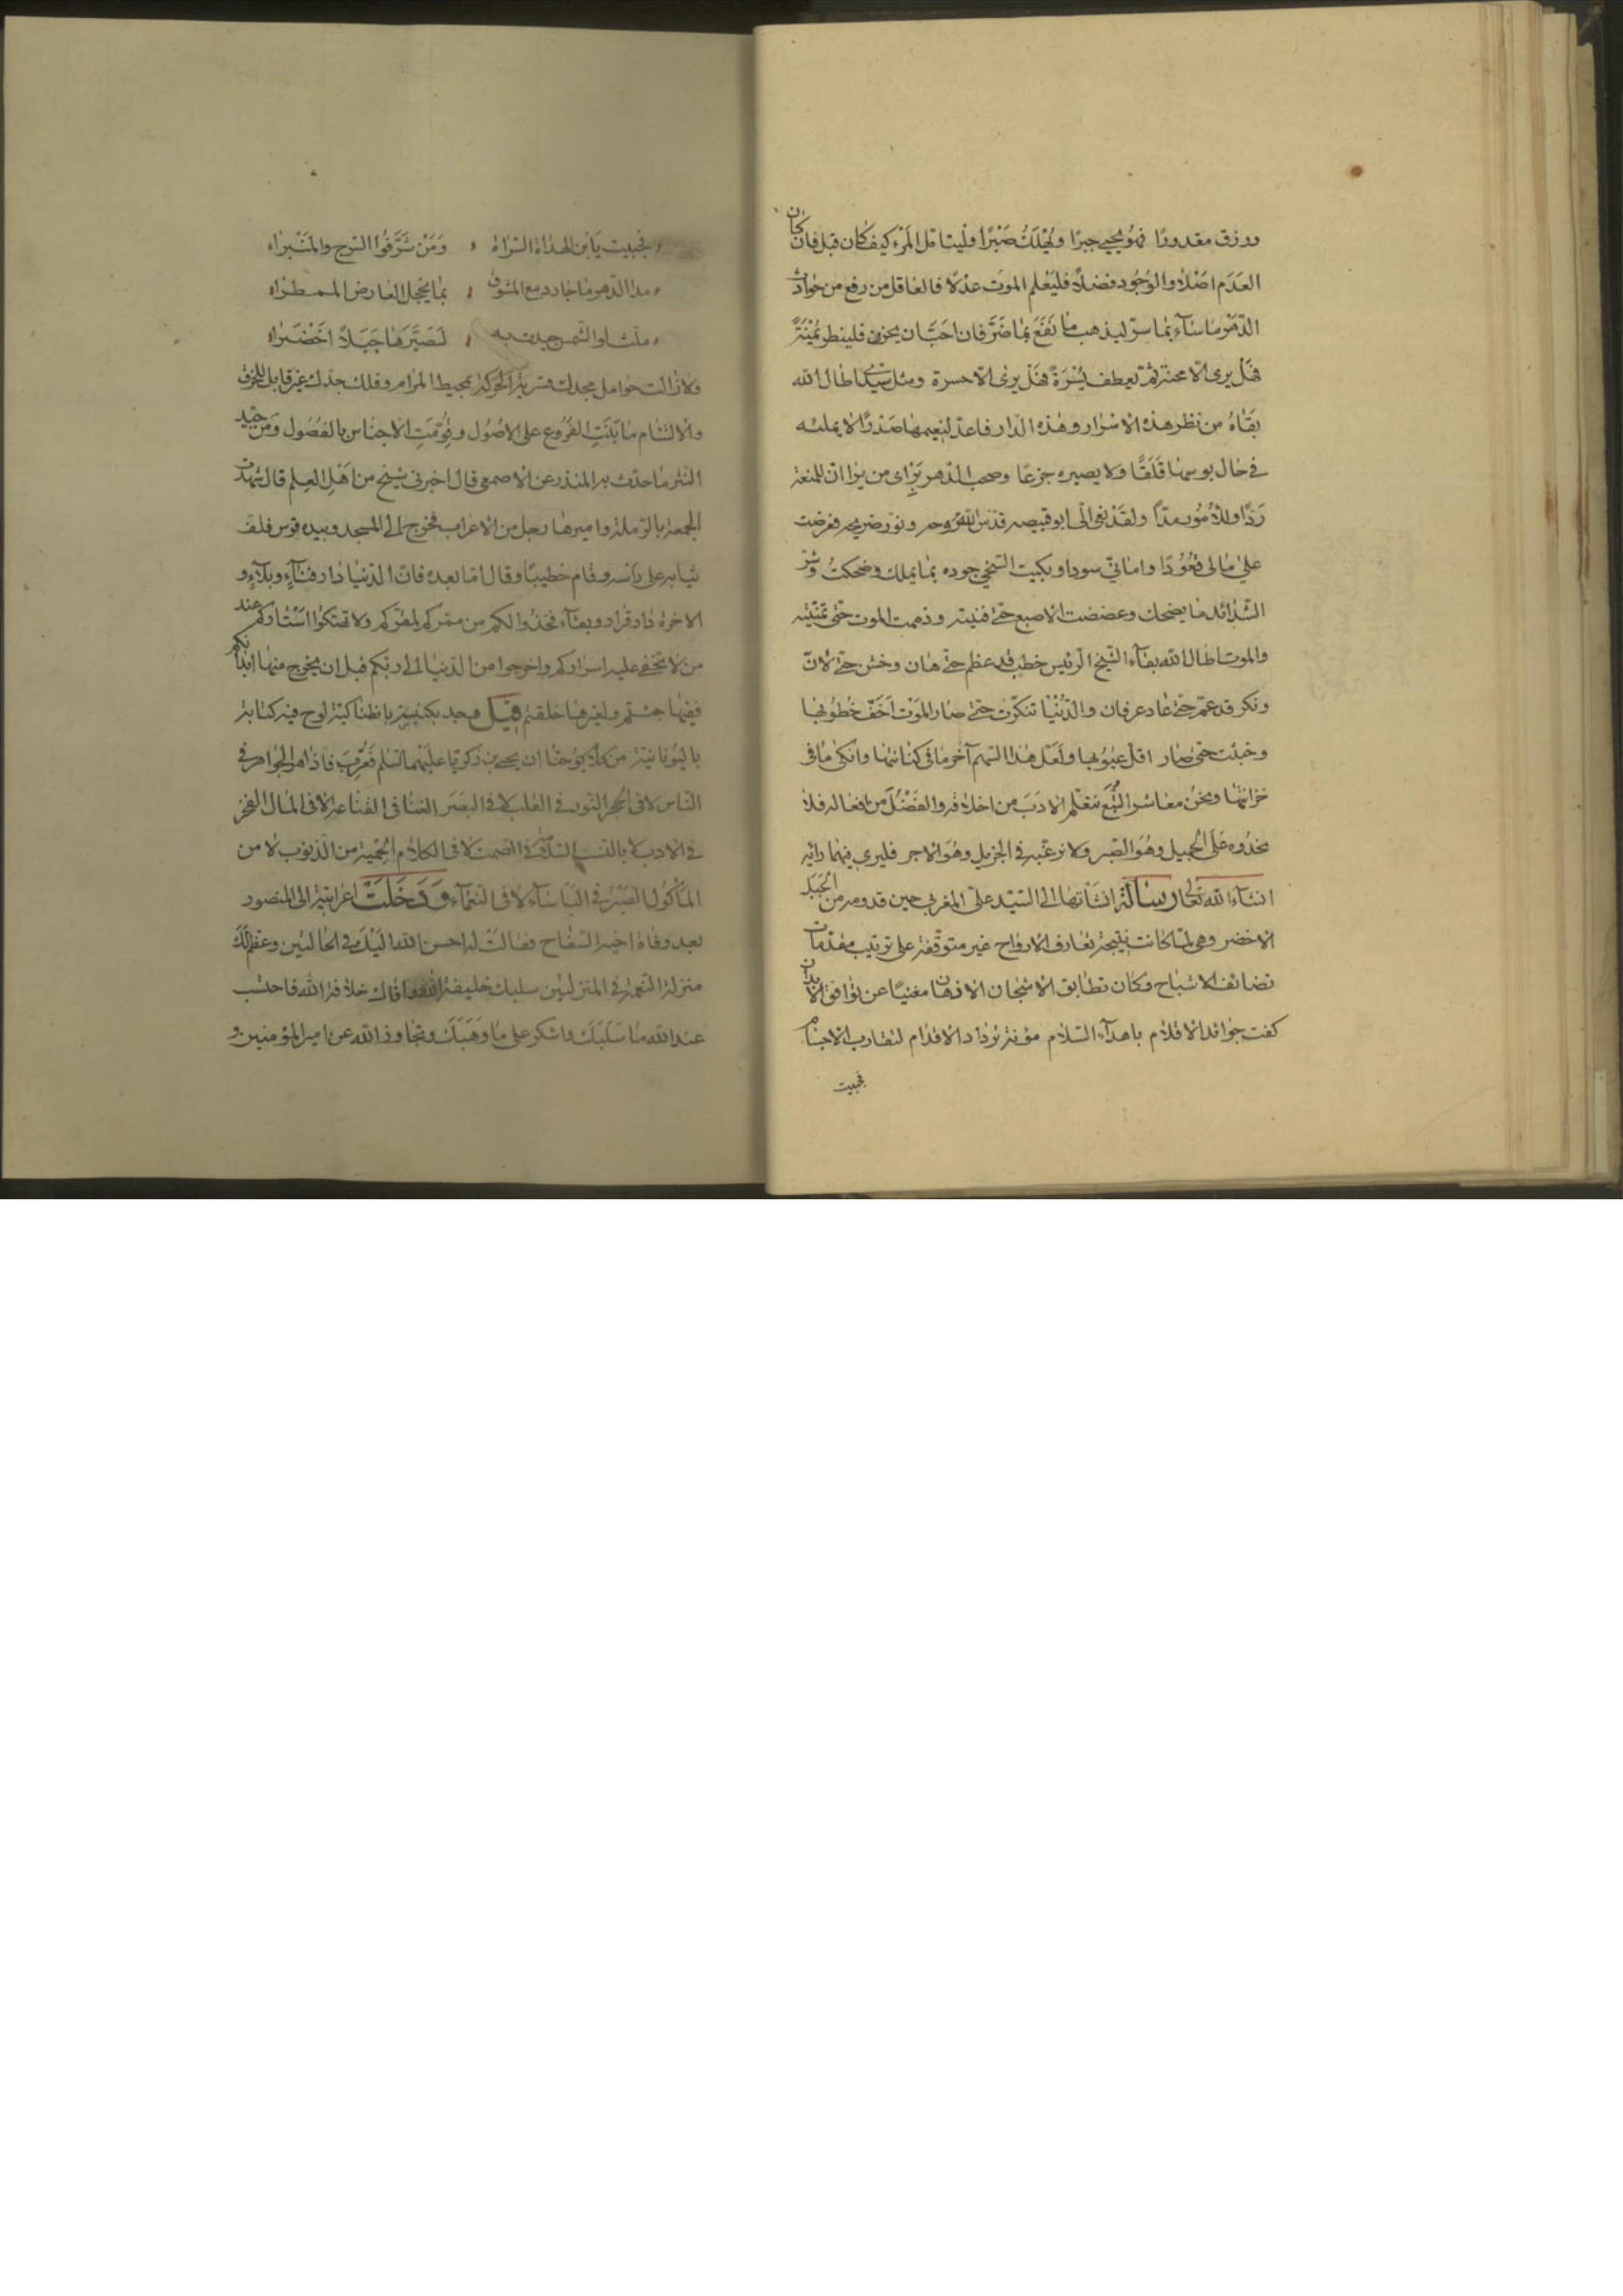 ورزق مقدورًا فهو يحيي جبرًا ويهلك صبرًا وليتامل المرء كيف كان قبل فان كان
العدم اصلًا والوجود فضلًا فليعلم الموت عدلًا فالعاقل من رفع من حوادث
الدهر ما ساء بما سرّ ليذهب ما نفع بما ضرّ فان احبّ ان يحزن فلينظر يمنةً
هل يرى الا محنة ثم ليعطف يسرةً هل يرى الا حسرة ومثل سيدي اطال الله
بقاه من نظر هذه الاسرار وهذه الدار فاعدّ لنعيمها صدرًا لا يملئه
في حال بوسها قلقًا ولا يصيره جزعًا وصحب الدهر براى من يرا ان للمتعة
ردًّا وللامور مدًّا ولقد نعى الى ابو قبيصه قدس الله روحه ونور ضريحه فعرضت
على مالى قعودًا وامانى سودا وبكيت السخي جوده بما يملك وضحكت وشر
الشدائد ما يضحك وعضضت الاصبع حتى فنيته وذممت الموت حتى تمنيته
والموت اطال الله بقاء الشيخ الرئيس خطب قد عظم حتى هان وخشن حتى لان
ونكر قد عم حتى عاد عرفان والدنيا تنكرت حتى صار الموت اخف خطوبها
وخبثت حتى صار اقل عيوبها ولعل هذا السهم آخر ما في كنانتها وانكى ما في
خزانتها ونحن معاشر التبع نتعلم الادب من اخلاقه والفضل من افعاله فلا
نحذوه على الجميل وهو الصبر ولا نرغبه في الجزيل وهو الاجر فليرى فيهما رايه
انشاء الله تعالى رسالة انشاتها الى السيد على المغربى حين قدومه من الجبل
الاخضر وهي لما كانت نتيجة تعارف الارواح غير متوقفة على ترتيب مقدمات
تضائف الاشباح وكان تطابق الاشجان الاذهان مغنيًا عن توافق الابدان
كفت جوائد الاقلام باهداء السلام مؤنة تزداد الاقدام لتقارب الاجسام
فحييت
فحييت يابن الهداة السراة ومن شرفوا السرج والمنبرا
مدا الدهر ما جاد دمع المشوق بما يخجل العارض الممطرا
ملث لو الشمس جيدت به لصيرها جبلًا اخضرا
ولا زالت حوامل مجدك سريعة الحركة بمحيط المرام وفلك جدك غير قابل للخرق
والالتئام ما بنيت الفروع على الاصول وقومت الاجناس بالفصول ومن جيد
النثر ما حدث به المنذر عن الاصمعي قال اخبرنى شيخ من اهل العلم قال شهدت
الجمعة بالرملة واميرها رجل من الاعراب فخرج الى المسجد وبيده قوس فلف
ثيابه على راسه وقام خطيبًا وقال اما بعد فان الدنيا دار فناء وبلاء و
الاخرة دار قرار وبقاء فخذوا لكم من ممركم لمقركم ولا تهتكوا استاركم عند
من لا تخفى عليه اسراركم واخرجوا من الدنيا الى ربكم قبل ان يخرج منها ابدانكم
ففيها جئتم ولغيرها خلقتم قيل وجد بكنيسة بانطاكية لوح فيه كتابة
باليونانية من كلام يوحنا ان يحيى بن زكريا عليهما السلم فعرّب فاذا هو الجواهر في
الناس لا في الحجر النور في القلب لا في البصر الغنا في القناعة لا في المال الفخر
في الادب لا بالنسب السلامة في الصمت لا في الكلام الحمية من الذنوب لا من
الماكول الصبر في الباساء لا في النعماء ودخلت اعرابية الى المنصور
بعد وفاة اخيه السفاح فقالت له احسن الله اليك في الحالتين وعظم لك
منزلة النعمة في المنزلتين سلبك خليفة الله وافاك خلافة الله فاحتسب
عند الله ما سلبك واشكر على ما وهبك وتجاوز الله عن امير المؤمنين و